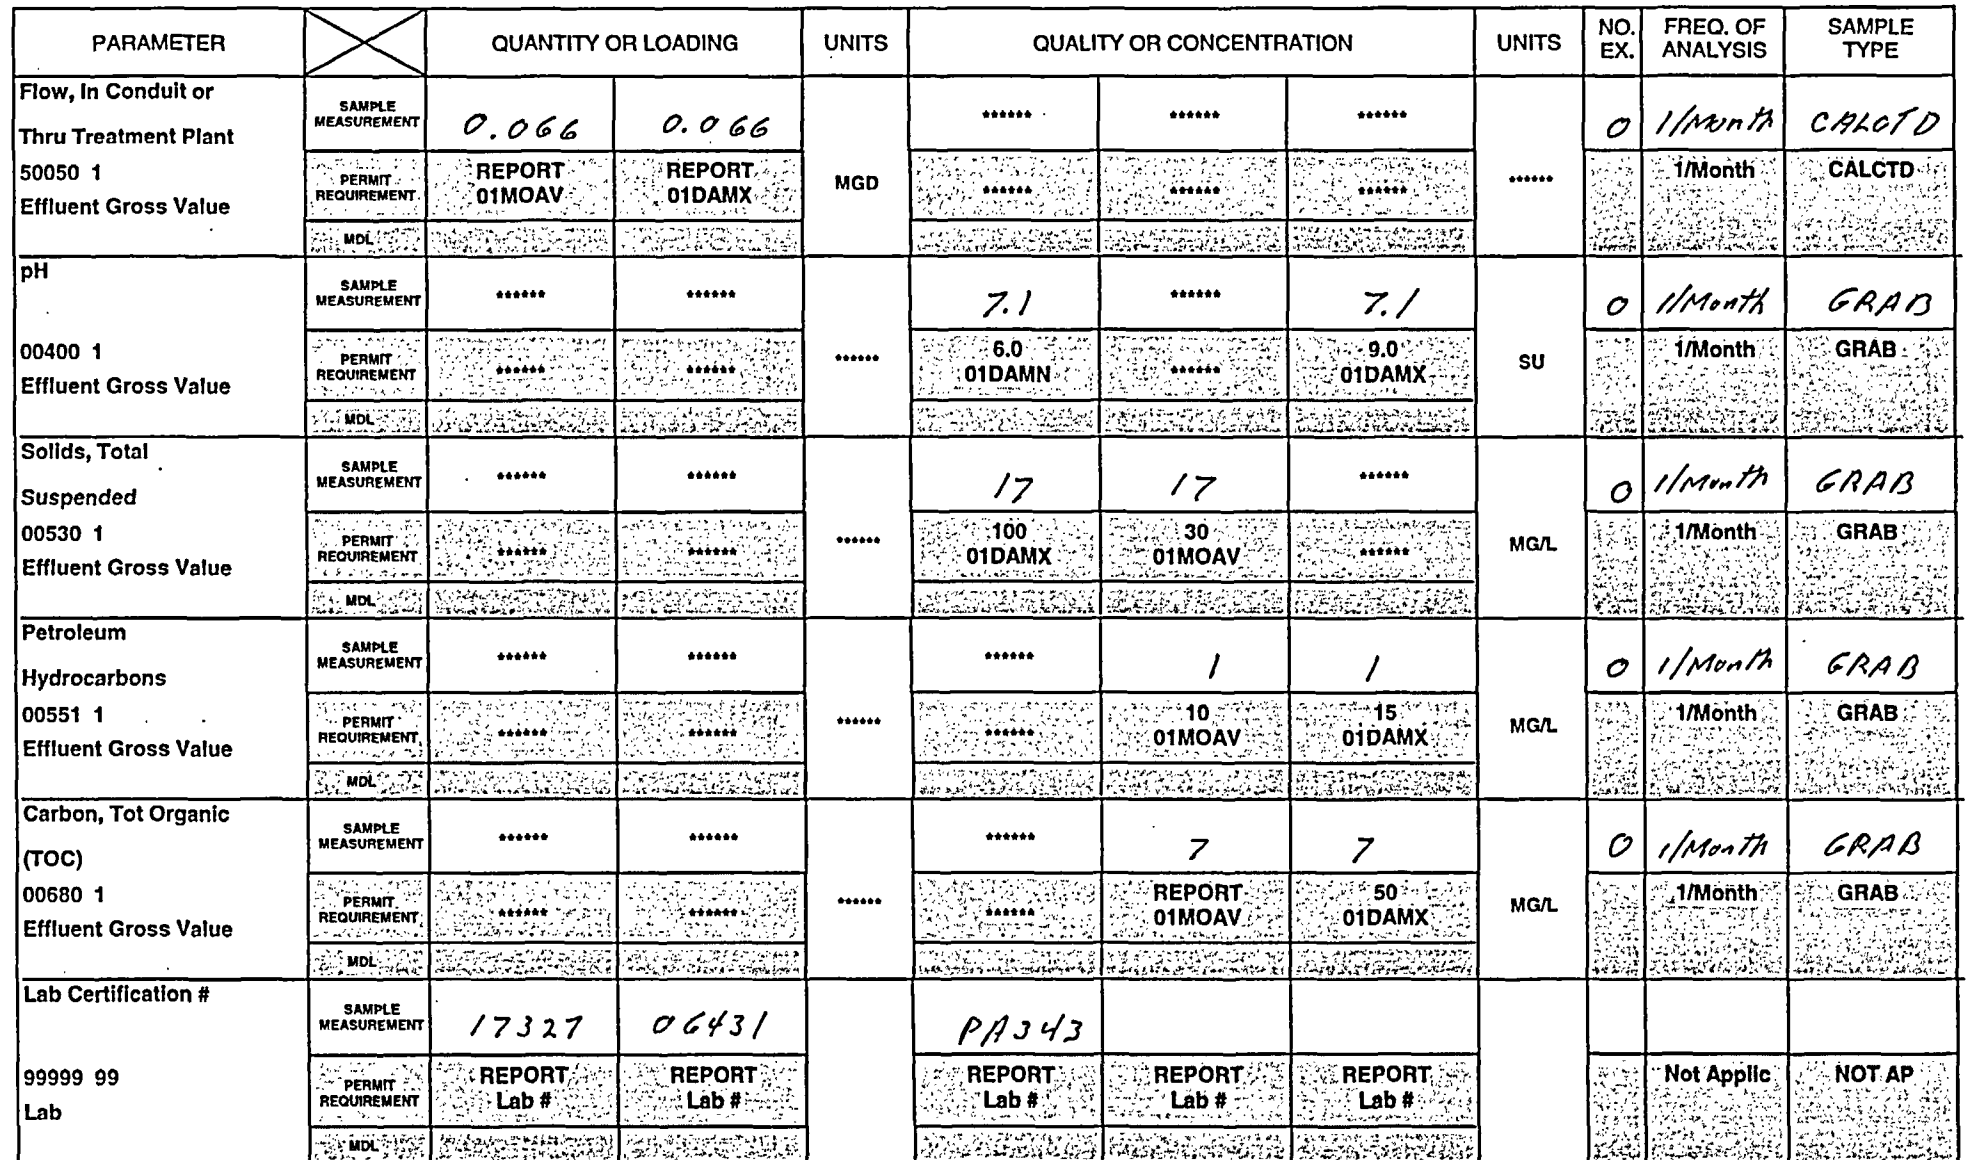 PARAMETER QUANTITY OR LOADING UNITS QUALITY OR CONCENTRATION UNITS NO. EX. FREQ. OF ANALYSIS SAMPLE TYPE
Flow, In Conduit or
Thru Treatment Plant
50050 1
Effluent Gross Value
SAMPLE MEASUREMENT 0.066 0.066 ****** ****** ****** 0 1/Month CALCTD
PERMIT REQUIREMENT REPORT 01MOAV REPORT 01DAMX MGD ****** ****** ****** ****** 1/Month CALCTD
MDL
pH
00400 1
Effluent Gross Value
SAMPLE MEASUREMENT ****** ****** 7.1 ****** 7.1 0 1/Month GRAB
PERMIT REQUIREMENT ****** ****** ****** 6.0 01DAMN ****** 9.0 01DAMX SU 1/Month GRAB
MDL
Solids, Total
Suspended
00530 1
Effluent Gross Value
SAMPLE MEASUREMENT ****** ****** 17 17 ****** 0 1/Month GRAB
PERMIT REQUIREMENT ****** ****** ****** 100 01DAMX 30 01MOAV ****** MG/L 1/Month GRAB
MDL
Petroleum
Hydrocarbons
00551 1
Effluent Gross Value
SAMPLE MEASUREMENT ****** ****** ****** 1 1 0 1/Month GRAB
PERMIT REQUIREMENT ****** ****** ****** ****** 10 01MOAV 15 01DAMX MG/L 1/Month GRAB
MDL
Carbon, Tot Organic
(TOC)
00680 1
Effluent Gross Value
SAMPLE MEASUREMENT ****** ****** ****** 7 7 0 1/Month GRAB
PERMIT REQUIREMENT ****** ****** ****** ****** REPORT 01MOAV 50 01DAMX MG/L 1/Month GRAB
MDL
Lab Certification #
99999 99
Lab
SAMPLE MEASUREMENT 17327 06431 PA343
PERMIT REQUIREMENT REPORT Lab # REPORT Lab # REPORT Lab # REPORT Lab # REPORT Lab # Not Applic NOT AP
MDL